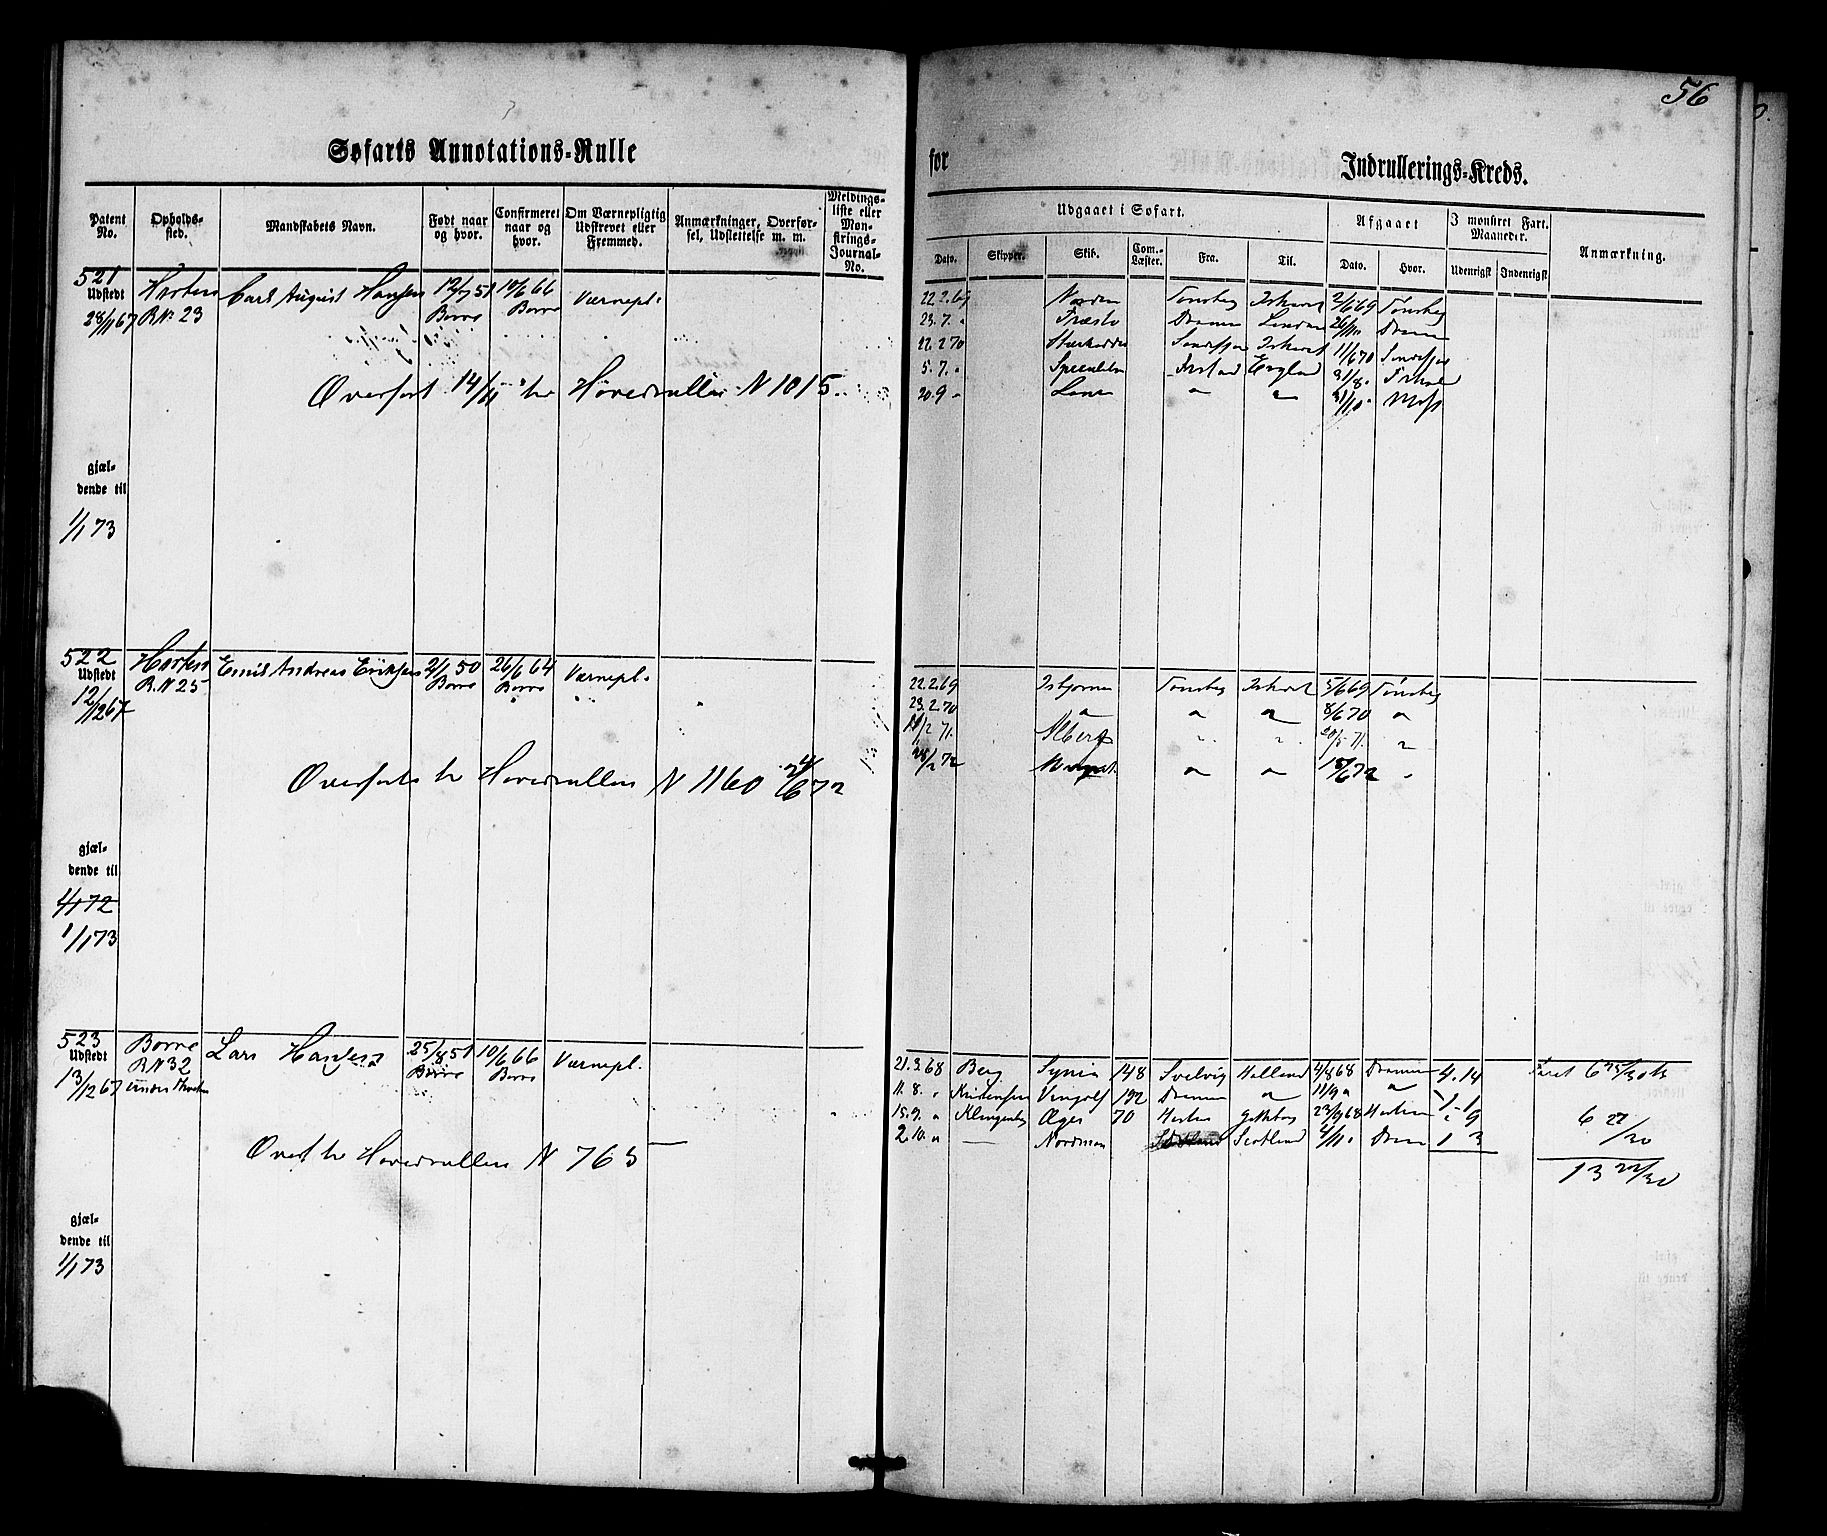 56
Søfarts Annotations-Rulle for Indrullerings-Kreds.
Patent No. Opholds-sted. Mandskabets Navn. Født naar og hvor. Confirmeret naar og hvor. Om Værnepligtig Udskrevet eller Fremmed. Anmærkninger, Overførsel, Udslettelse m. m. Meldings-liste eller Mønstrings-Journal-No.
Udgaaet i Søfart. Afgaaet I mønstret Fart. Maaneder. Anmærkning.
Dato. Skipper. Skib. Com.-Læster. Fra. Til. Dato. Hvor. Udenrigst Indenrigst
521 Horten Carl August Hansen 12/7 51 10/6 66 Værnepl.
Udstedt R.No 23 Borre Borre
28/11 67
22.2.69 Norden Tønsberg Ishavet 2/6 69 Tønsberg
23.7. " Dramen London 26/10 Dramen
22.2 70 Ishavet 11/6 70
5.7. " England 31/8 "
20.9 " " " 31/10 " Moss
Overført 14/11 til Hovedrullen N 1015.
gjæl-
dende til
1/1 73
522 Horten Emil Andreas Eriksen 2/1 50 26/6 64 Værnepl.
Udstedt R.N 25 Borre Borre
12/12 67
22.2.69 Isbjørnen Tønsberg Ishavet 5/6 69 Tønsberg
23.2.70 " " " 8/6 70 "
/2 71. Albert " " 20/5 71. "
28/2 72 " " 15/6 72 "
Overført til Hovedrullen N 1160 24/6 72
gjæl-
dende til
1/1 72
1/1 73
523 Borre Lars Hansen 25/8 51 10/6 66 Værnepl.
Udstedt R.N 32 Borre Borre
13/12 67
21.3.68 Berg Syria 148 Svelvig Holland 4/8 68 Dramen 4.14
11.8. " Kristensen Vingolf 192 Dramen " 11/9 " " 1.1
15.9. " Klingenberg Æger 70 Horten 23/9 68 Horten " 9
2.10. " — Nordman Scotland 4/11 " Dramen 1 3
6 27/30
13 22/30
Overf til Hovedrullen N 765
gjæl-
dende til
1/1 73